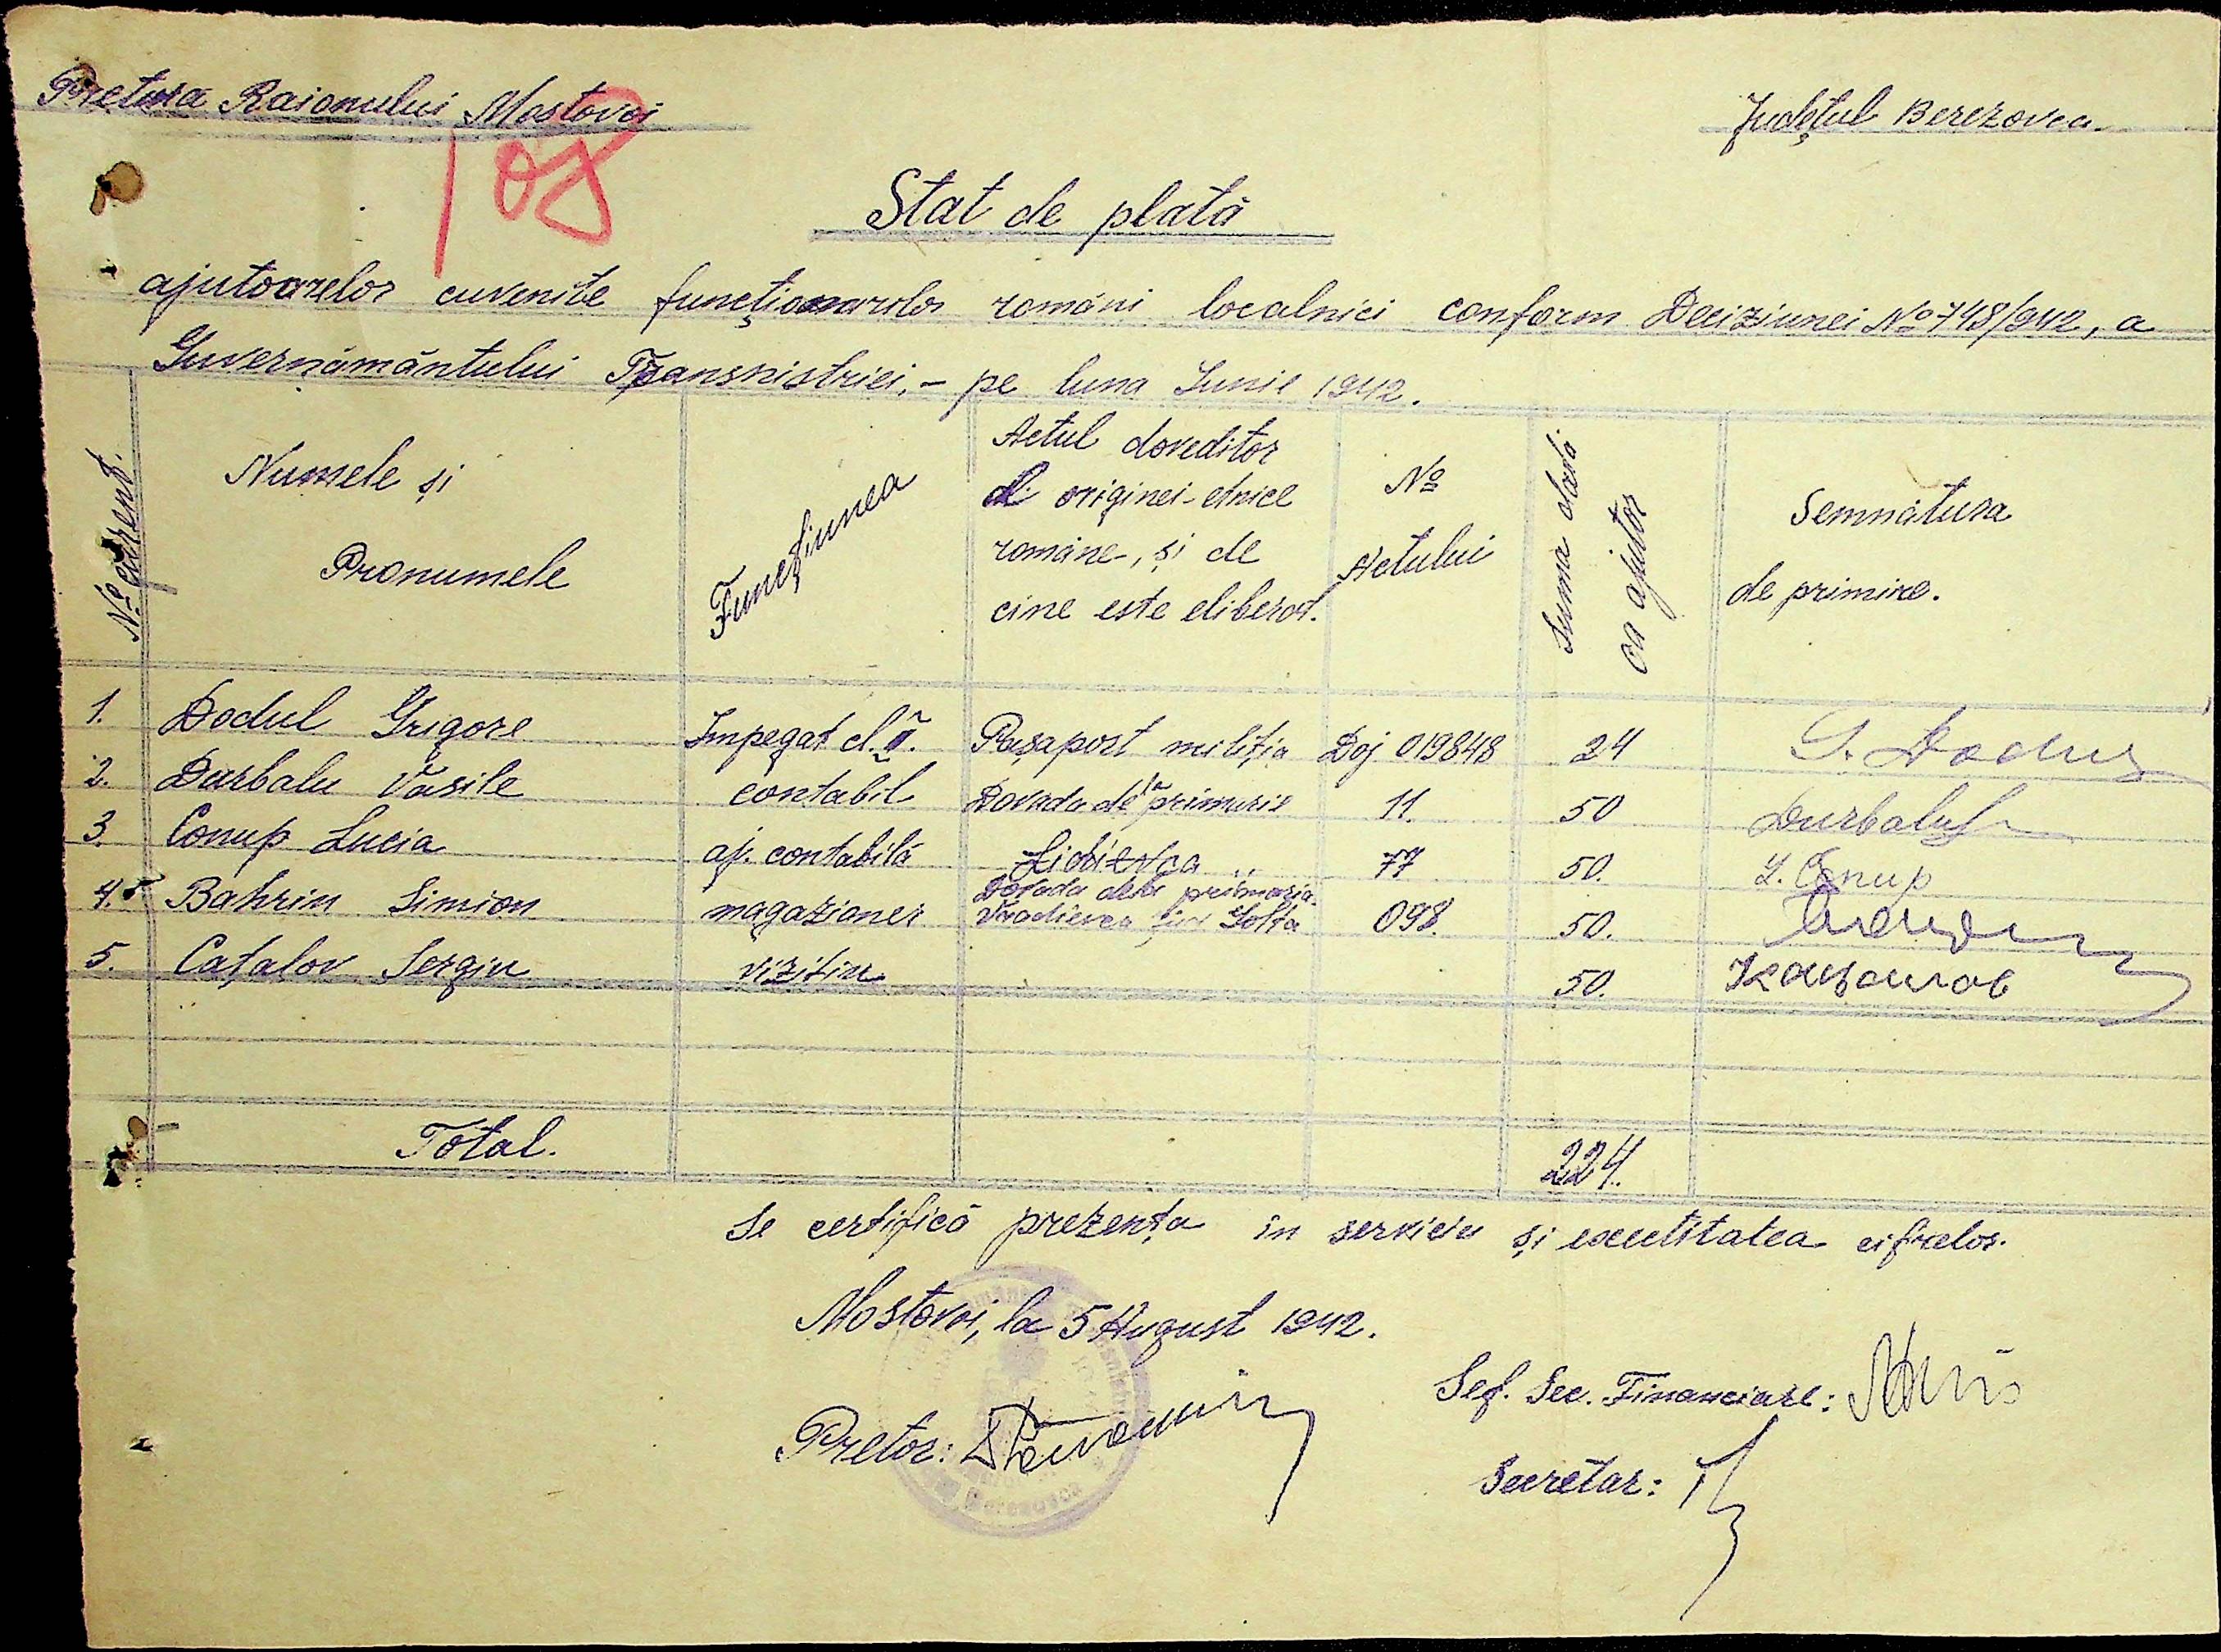 Pretura Raionului Mostovoi
Județul Berezovca
108
Stat de plată
ajutoarelor cuvenite funcționarilor români localnici conform Deciziunei № 748/942, a
Guvernământului Transnistriei,- pe luna Iunie 1942.
№ curent. Numele și Pronumele Funcțiunea Actul doveditor d. originei-etnice române-, și de cine este eliberat. № Actului Suma dată ca ajutor Semnătura de primire.
1. Dodul Grigore Impegat cl. II. Pașaport miliția Doj 019848 24 G. Dodul
2. Durbalu Vasile contabil Dovada de la primarie 11. 50 Durbalu
3. Conup Lucia aj. contabilă 77 50. L. Conup
4. Bahrin Simion magazioner Dovada dela primaria Vradievca Golta 098. 50.
5. Cațalov Sergiu vizitiu 50. Кацалов
Total. 224.
Se certifică prezența în serviciu și exectitatea cifrelor.
Mostovoi, la 5 August 1942.
Pretor:
Sef. Sec. Financiare:
Secretar: